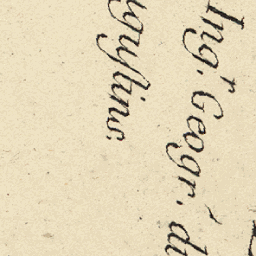 Ingr. Geogr. du
gustins.